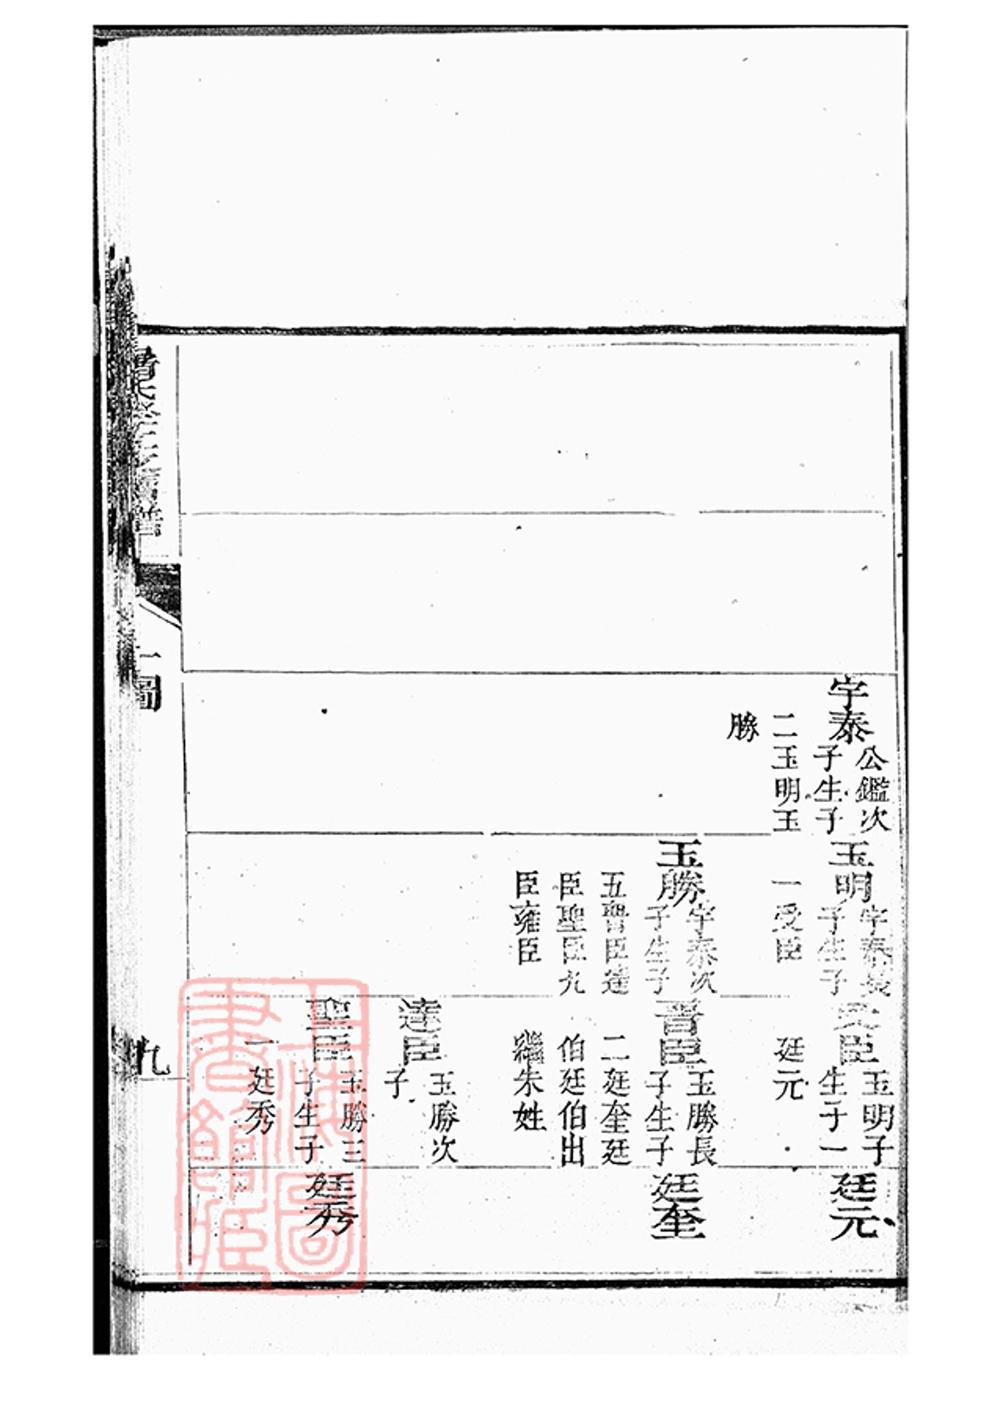 宇泰
公鑑次
子生子
二玉明玉
勝
玉明
宇泰長
子生子
一受臣
玉勝
宇泰次
子生子
五晋臣達
臣聖臣九
臣雍臣
受臣
玉明子
生子一
廷元
晋臣
玉勝長
子生子
二廷奎廷
伯廷伯出
繼朱姓
達臣
玉勝次
子
聖臣
玉勝三
子生子
一廷秀
廷元
廷奎
廷秀
圖
九
上海圖
書館藏